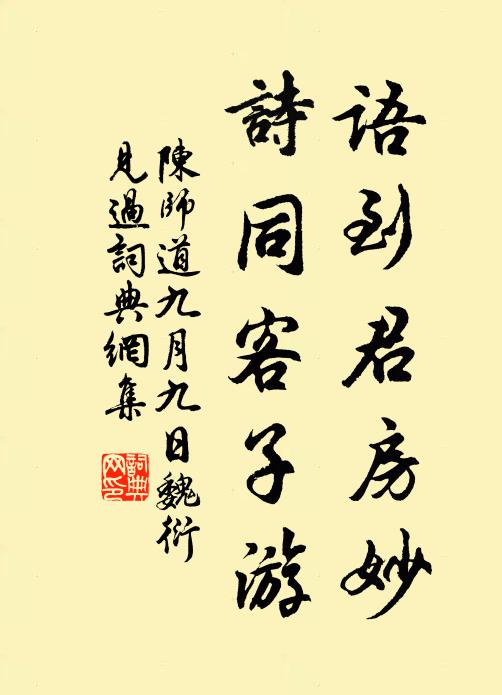 語到君房妙
詩同客子游
陳師道九月九日魏衍
見過詞典網集
詞典
网印